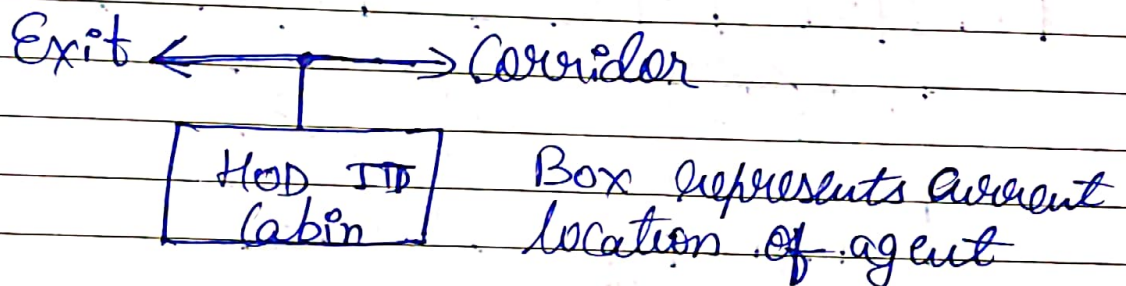 Exit Corridor
HOD ITD
Cabin
Box represents current
location of agent